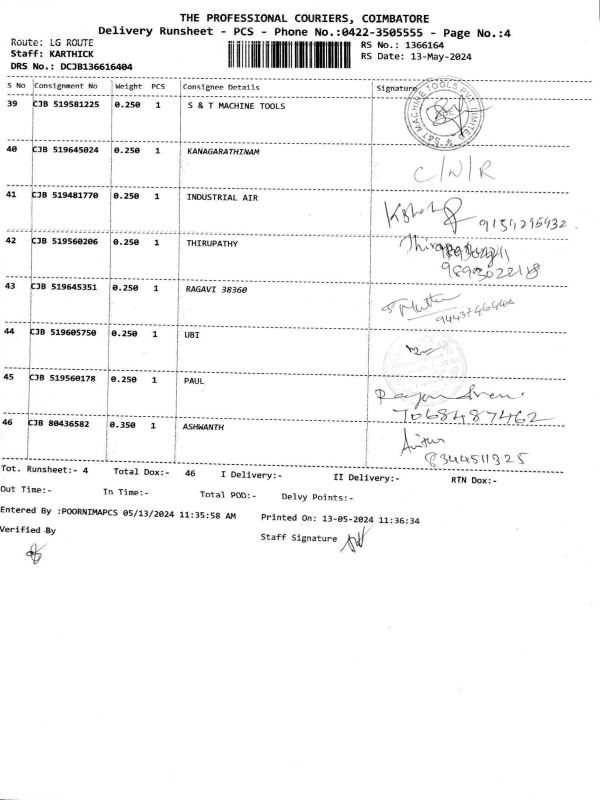 THE PROFESSIONAL COURIERS, COIMBATORE
Delivery Runsheet - PCS - Phone No.:0422-3505555 - Page No.:4
Route: LG ROUTE
RS No.: 1366164
Staff: KARTHICK
RS Date: 13-May-2024
DRS No.: DCJB136616404
S No Consignment No Weight PCS Consignee Details Signature
39 CJB 519581225 0.250 1 S & T MACHINE TOOLS
40 CJB 519645024 0.250 1 KANAGARATHINAM
C/N/R
41 CJB 519481770 0.250 1 INDUSTRIAL AIR
42 CJB 519560206 0.250 1 THIRUPATHY
43 CJB 519645351 0.250 1 RAGAVI 38360
44 CJB 519605750 0.250 1 UBI
45 CJB 519560178 0.250 1 PAUL
7068487462
46 CJB 80436582 0.350 1 ASHWANTH
8344511325
Tot. Runsheet:- 4 Total Dox:- 46 I Delivery:- II Delivery:- RTN Dox:-
Out Time:- In Time:- Total POD:- Delvy Points:-
Entered By :POORNIMAPCS 05/13/2024 11:35:58 AM Printed On: 13-05-2024 11:36:34
Verified By
Staff Signature